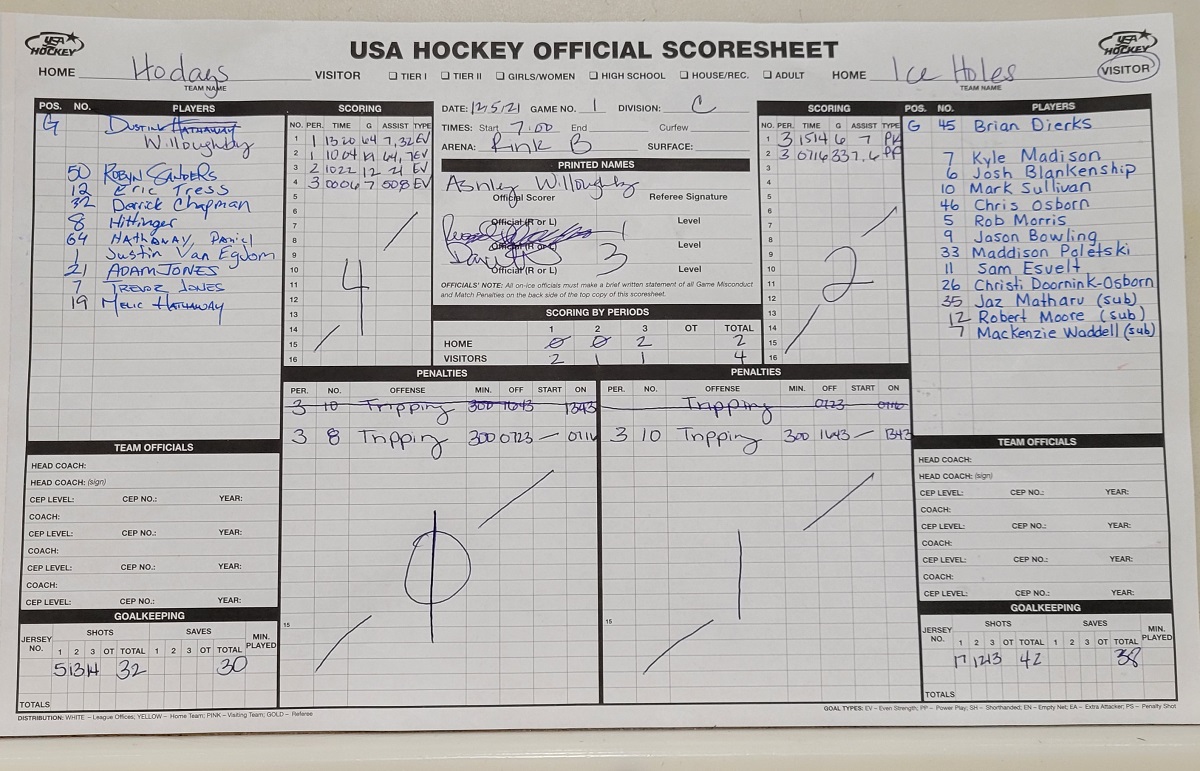 USA HOCKEY
USA HOCKEY OFFICIAL SCORESHEET
USA HOCKEY
HOME Hodags VISITOR TIER I TIER II GIRLS/WOMEN HIGH SCHOOL HOUSE/REC. ADULT HOME Ice Holes VISITOR
TEAM NAME
TEAM NAME
POS. NO. PLAYERS
G Dustin Hathaway
Willoughby
50 Robyn Sanders
12 Eric Tress
32 Derrick Chapman
8 Hittinger
64 Hathaway, Daniel
1 Justin Van Egdom
21 ADAM JONES
7 TREVOR JONES
19 Melic Hathaway
SCORING
NO. PER. TIME G ASSIST TYPE
1 1 1320 64 7,32 EV
2 1 1004 19 64,7 EV
3 2 1022 12 21 EV
4 3 0006 7 50 8 EV
5
6
7
8
9
10
11
12
13
14
15
16
4
DATE: 12.5.21 GAME NO. 1 DIVISION: C
TIMES: Start 7:00 End Curfew
ARENA: Rink B SURFACE:
PRINTED NAMES
Ashley Willoughby
Official Scorer Referee Signature
Official (R or L) Level
1
Official (R or L) Level
3
Official (R or L) Level
OFFICIALS' NOTE: All on-ice officials must make a brief written statement of all Game Misconduct
and Match Penalties on the back side of the top copy of this scoresheet.
SCORING BY PERIODS
1 2 3 OT TOTAL
HOME 0 0 2 2
VISITORS 2 1 1 4
SCORING
NO. PER. TIME G ASSIST TYPE
1 3 1514 6 7 PP
2 3 0716 33 7,6 PP
3
4
5
6
7
8
9
10
11
12
13
14
15
16
2
POS. NO. PLAYERS
G 45 Brian Dierks
7 Kyle Madison
6 Josh Blankenship
10 Mark Sullivan
46 Chris Osborn
5 Rob Morris
9 Jason Bowling
33 Maddison Poletski
11 Sam Esvelt
26 Christi Doornink-Osborn
35 Jaz Matharu (sub)
12 Robert Moore (sub)
7 Mackenzie Waddell (sub)
PENALTIES
PER. NO. OFFENSE MIN. OFF START ON
3 10 Tripping 300 1643 1343
3 8 Tripping 300 0723 — 0716
15
PENALTIES
PER. NO. OFFENSE MIN. OFF START ON
Tripping 0723 0716
3 10 Tripping 300 1643 — 1343
15
TEAM OFFICIALS
HEAD COACH:
HEAD COACH: (sign)
CEP LEVEL: CEP NO.: YEAR:
COACH:
CEP LEVEL: CEP NO.: YEAR:
COACH:
CEP LEVEL: CEP NO.: YEAR:
COACH:
CEP LEVEL: CEP NO.: YEAR:
GOALKEEPING
JERSEY NO. SHOTS SAVES MIN. PLAYED
1 2 3 OT TOTAL 1 2 3 OT TOTAL
5 13 14 32 30
TOTALS
TEAM OFFICIALS
HEAD COACH:
HEAD COACH: (sign)
CEP LEVEL: CEP NO.: YEAR:
COACH:
CEP LEVEL: CEP NO.: YEAR:
COACH:
CEP LEVEL: CEP NO.: YEAR:
COACH:
CEP LEVEL: CEP NO.: YEAR:
GOALKEEPING
JERSEY NO. SHOTS SAVES MIN. PLAYED
1 2 3 OT TOTAL 1 2 3 OT TOTAL
17 12 13 42 38
TOTALS
DISTRIBUTION: WHITE – League Offices; YELLOW – Home Team; PINK – Visiting Team; GOLD – Referee
GOAL TYPES: EV – Even Strength; PP – Power Play; SH – Shorthanded; EN – Empty Net; EA – Extra Attacker; PS – Penalty Shot